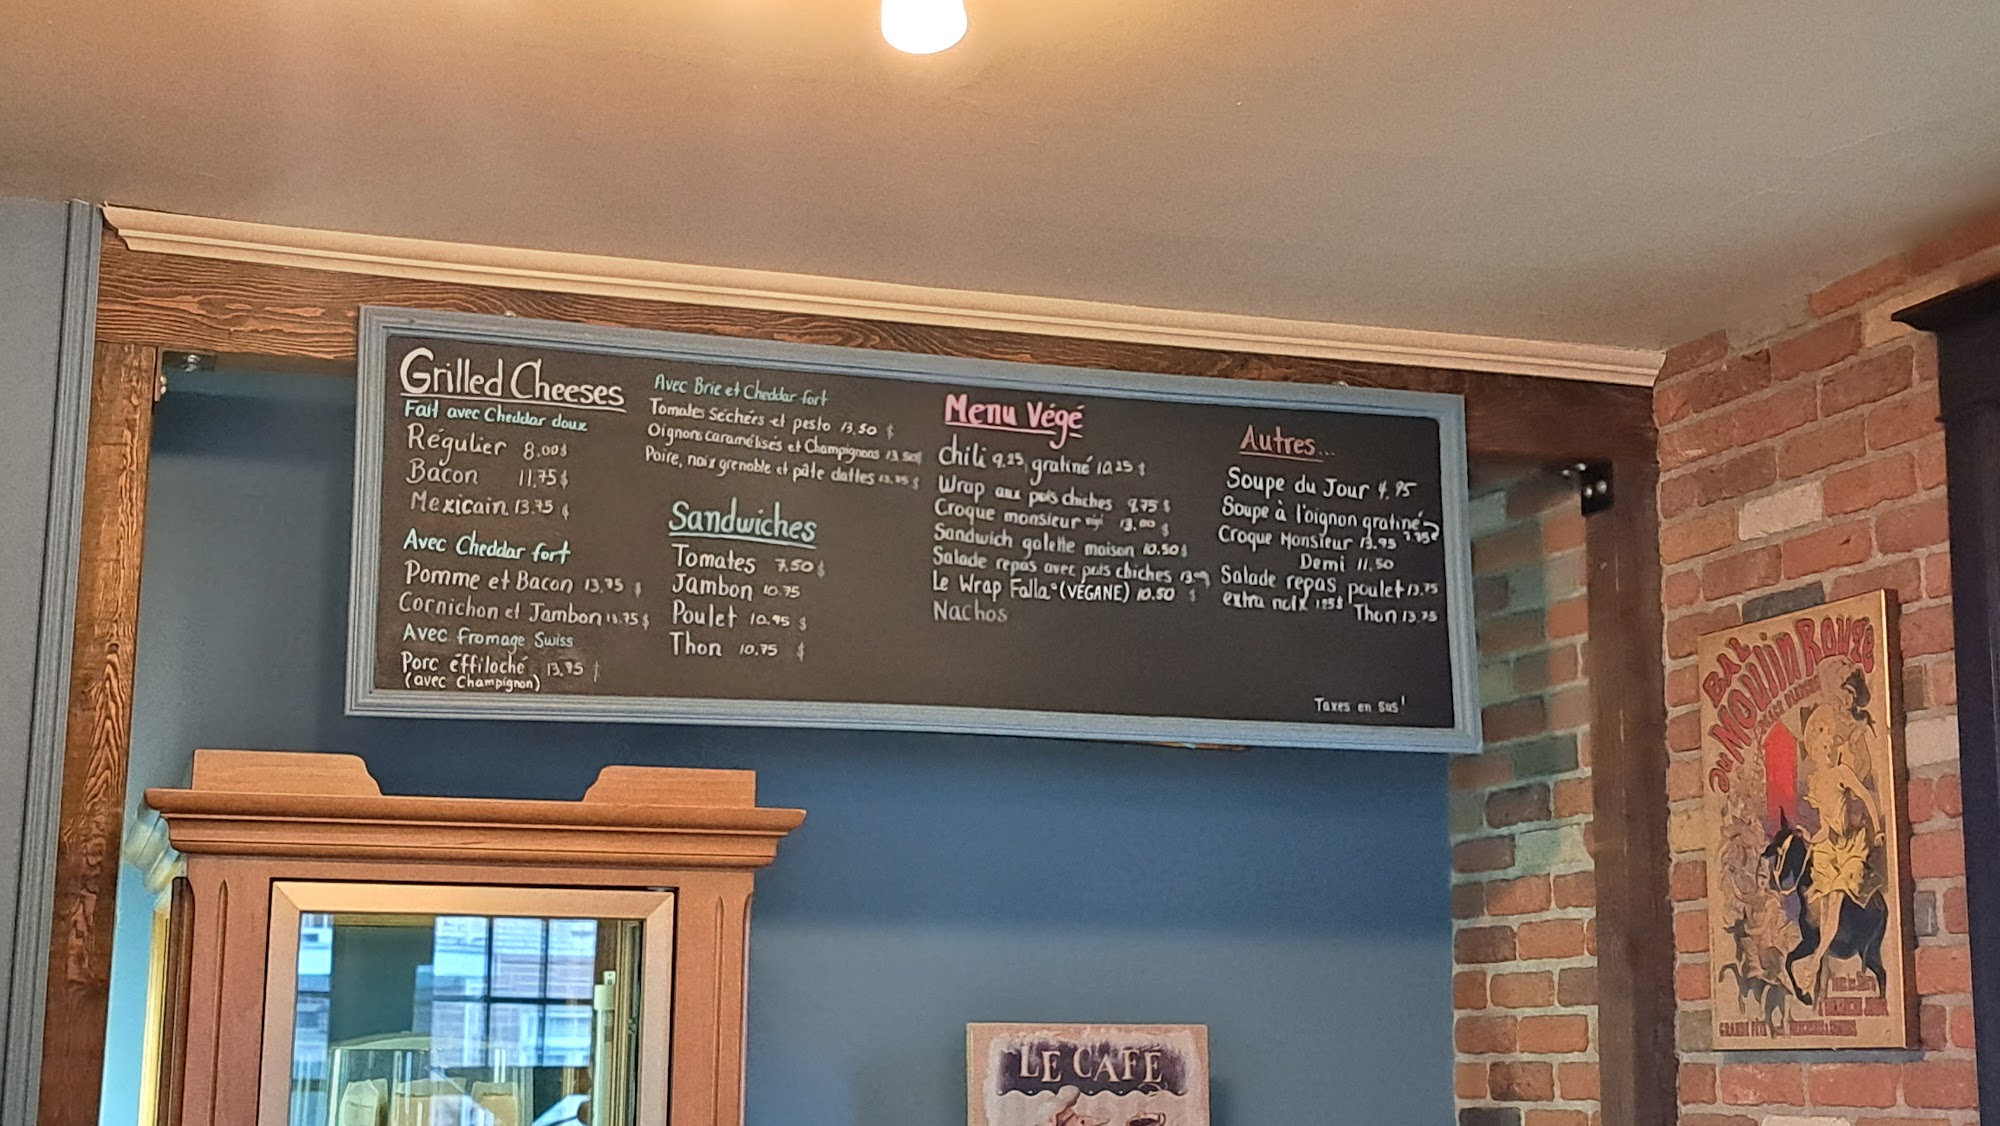 Grilled Cheeses
Fait avec Cheddar doux
Régulier 8.00$
Bacon 11.75$
Mexicain 13.75 $
Avec Cheddar fort
Pomme et Bacon 13.75 $
Cornichon et Jambon 13.75 $
Avec Fromage Swiss
Porc éffiloché 13.95 $
(avec Champignon)
Avec Brie et Cheddar fort
Tomates Séchées et pesto 13.50 $
Oignons caramélisés et Champignons 13.50$
Poire, noix grenoble et pâte dattes $
Sandwiches
Tomates 7.50 $
Jambon 10.75
Poulet 10.95 $
Thon 10.75 $
Menu Végé
chili 9.25, gratiné 10.25 $
Wrap aux pois chiches $
Croque monsieur végé 13.00 $
Sandwich galette maison 10.50$
Salade repas avec pois chiches
Le Wrap Falla (VÉGANE) 10.50 $
Nachos
Autres...
Soupe du Jour 4.95
Soupe à l'oignon gratiné
Croque Monsieur 13.95
Demi 11.50
Salade repas poulet 13.75
extra noix Thon 13.75
Taxes en sus!
BAL
AU MOULIN ROUGE
PLACE BLANCHE
GRANDE FÊTE
LE CAFÉ